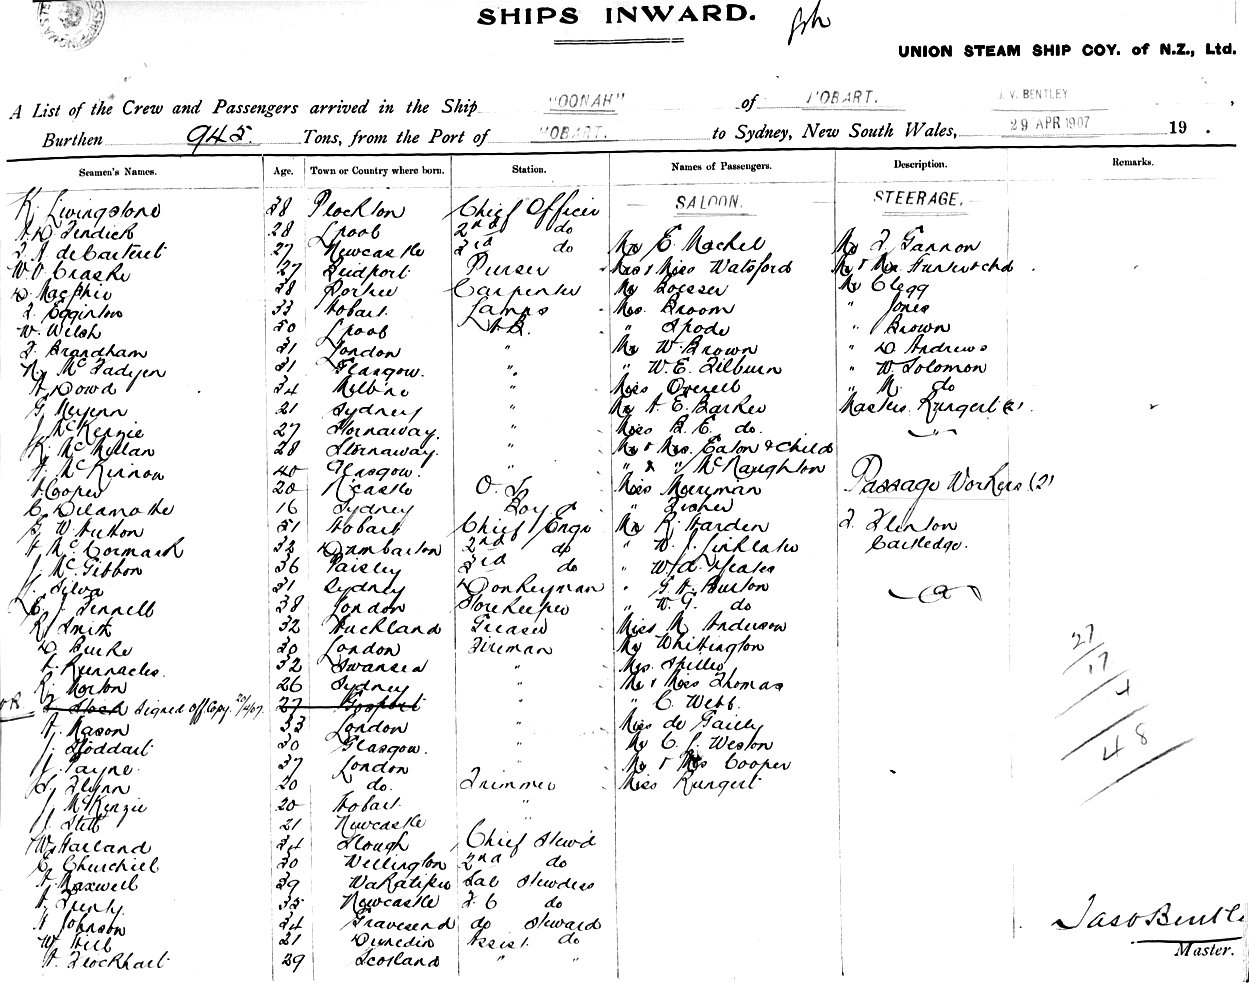 SHIPS INWARD.
UNION STEAM SHIP COY. of N.Z., Ltd.
A List of the Crew and Passengers arrived in the Ship "OONAH" of HOBART. J. V. BENTLEY
Burthen 945. Tons, from the Port of HOBART. to Sydney, New South Wales, 29 APR 1907 19 .
Seamen's Names. Age. Town or Country where born. Station. Names of Passengers. Description. Remarks.
SALOON. STEERAGE.
K. Livingstone 38 Plockton Chief Officer
28 Lpool 2nd do
27 Newcastle 3rd do Mr E. Machel Mr J. Gannon
27 Purser Miss & Miss Watsford Mr & Mrs Hunter & chd
D. Macphie 38 Carpenter Mr Boesser Mr Clegg
J. Egginton 33 Hobart Lamps Mrs. Broom " Jones
W. Welsh 50 Lpool A.B. " Spode " Brown
J. Brandham 31 London " Mr W. Brown " D Andrews
N. McFadyen 31 Glasgow. " " W. E. Zilburn " W. Solomon
A Dowd 34 Melbne " Miss Overell " M. do
21 Sydney " Mr A. E. Barker Masters Rungert (2)
J. McKenzie 27 Stornaway. " Miss B. E. do. "
K. McMillan 28 Stornaway. " Mr & Mrs. Eaton & Child
A. McKinnon 40 Glasgow. " " & " McNaughton
A Cooper 20 Ncastle O. S. Miss Merriman Passage Workers (2)
C. Delamothe 16 Sydney Boy " Fisher
G. W. Hutton 51 Hobart Chief Engr Mr R. Harden J. Flinton
A. McCormack 32 Dumbarton 2nd do " W. J. Linklater Cartledge.
J. McGibbon 36 Paisley 3rd do
J. Silva 31 Sydney Donkeyman " G. A. Burton
C. J. Fennell 38 London Storekeeper " W. G. do
R. Smith 32 Auckland Greaser Miss M. Anderson
D Burke 30 London Fireman Mr Whittington
A. Runnacles. 32 Swansea " Mrs. Spiller
R. Morton 26 Sydney " Mr & Miss Thomas
Signed Off Copy 20/4/07. 27 Gosport " C. Webb.
A. Mason 33 London " Miss de Gailly
J. Stoddart 30 Glasgow. " Mr C. J. Weston
J. Payne 37 London " Mr & Mrs Cooper
J. Flynn 20 do. Trimmer Miss Rungert
J. McKenzie 20 Hobart "
J. Stitt 21 Newcastle
W. Harland 34 Slough Chief Stewd
C. Churchill 30 Wellington 2nd do
A. Maxwell 39 Wakatipu Sal Stewdess
35 Newcastle F. C do
A Johnson 24 Gravesend do Steward
W. Hill 21 Dunedin Assist. do
A. Flockhart 29 Scotland " "
27
17
4
48
Jas V Bentle
Master.